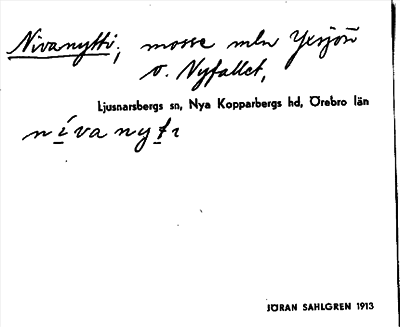 Nivanytti; mosse mln Yxsjön
o. Nyfallet,
Ljusnarsbergs sn, Nya Kopparbergs hd, Örebro län
nívanyti
JÖRAN SAHLGREN 1913